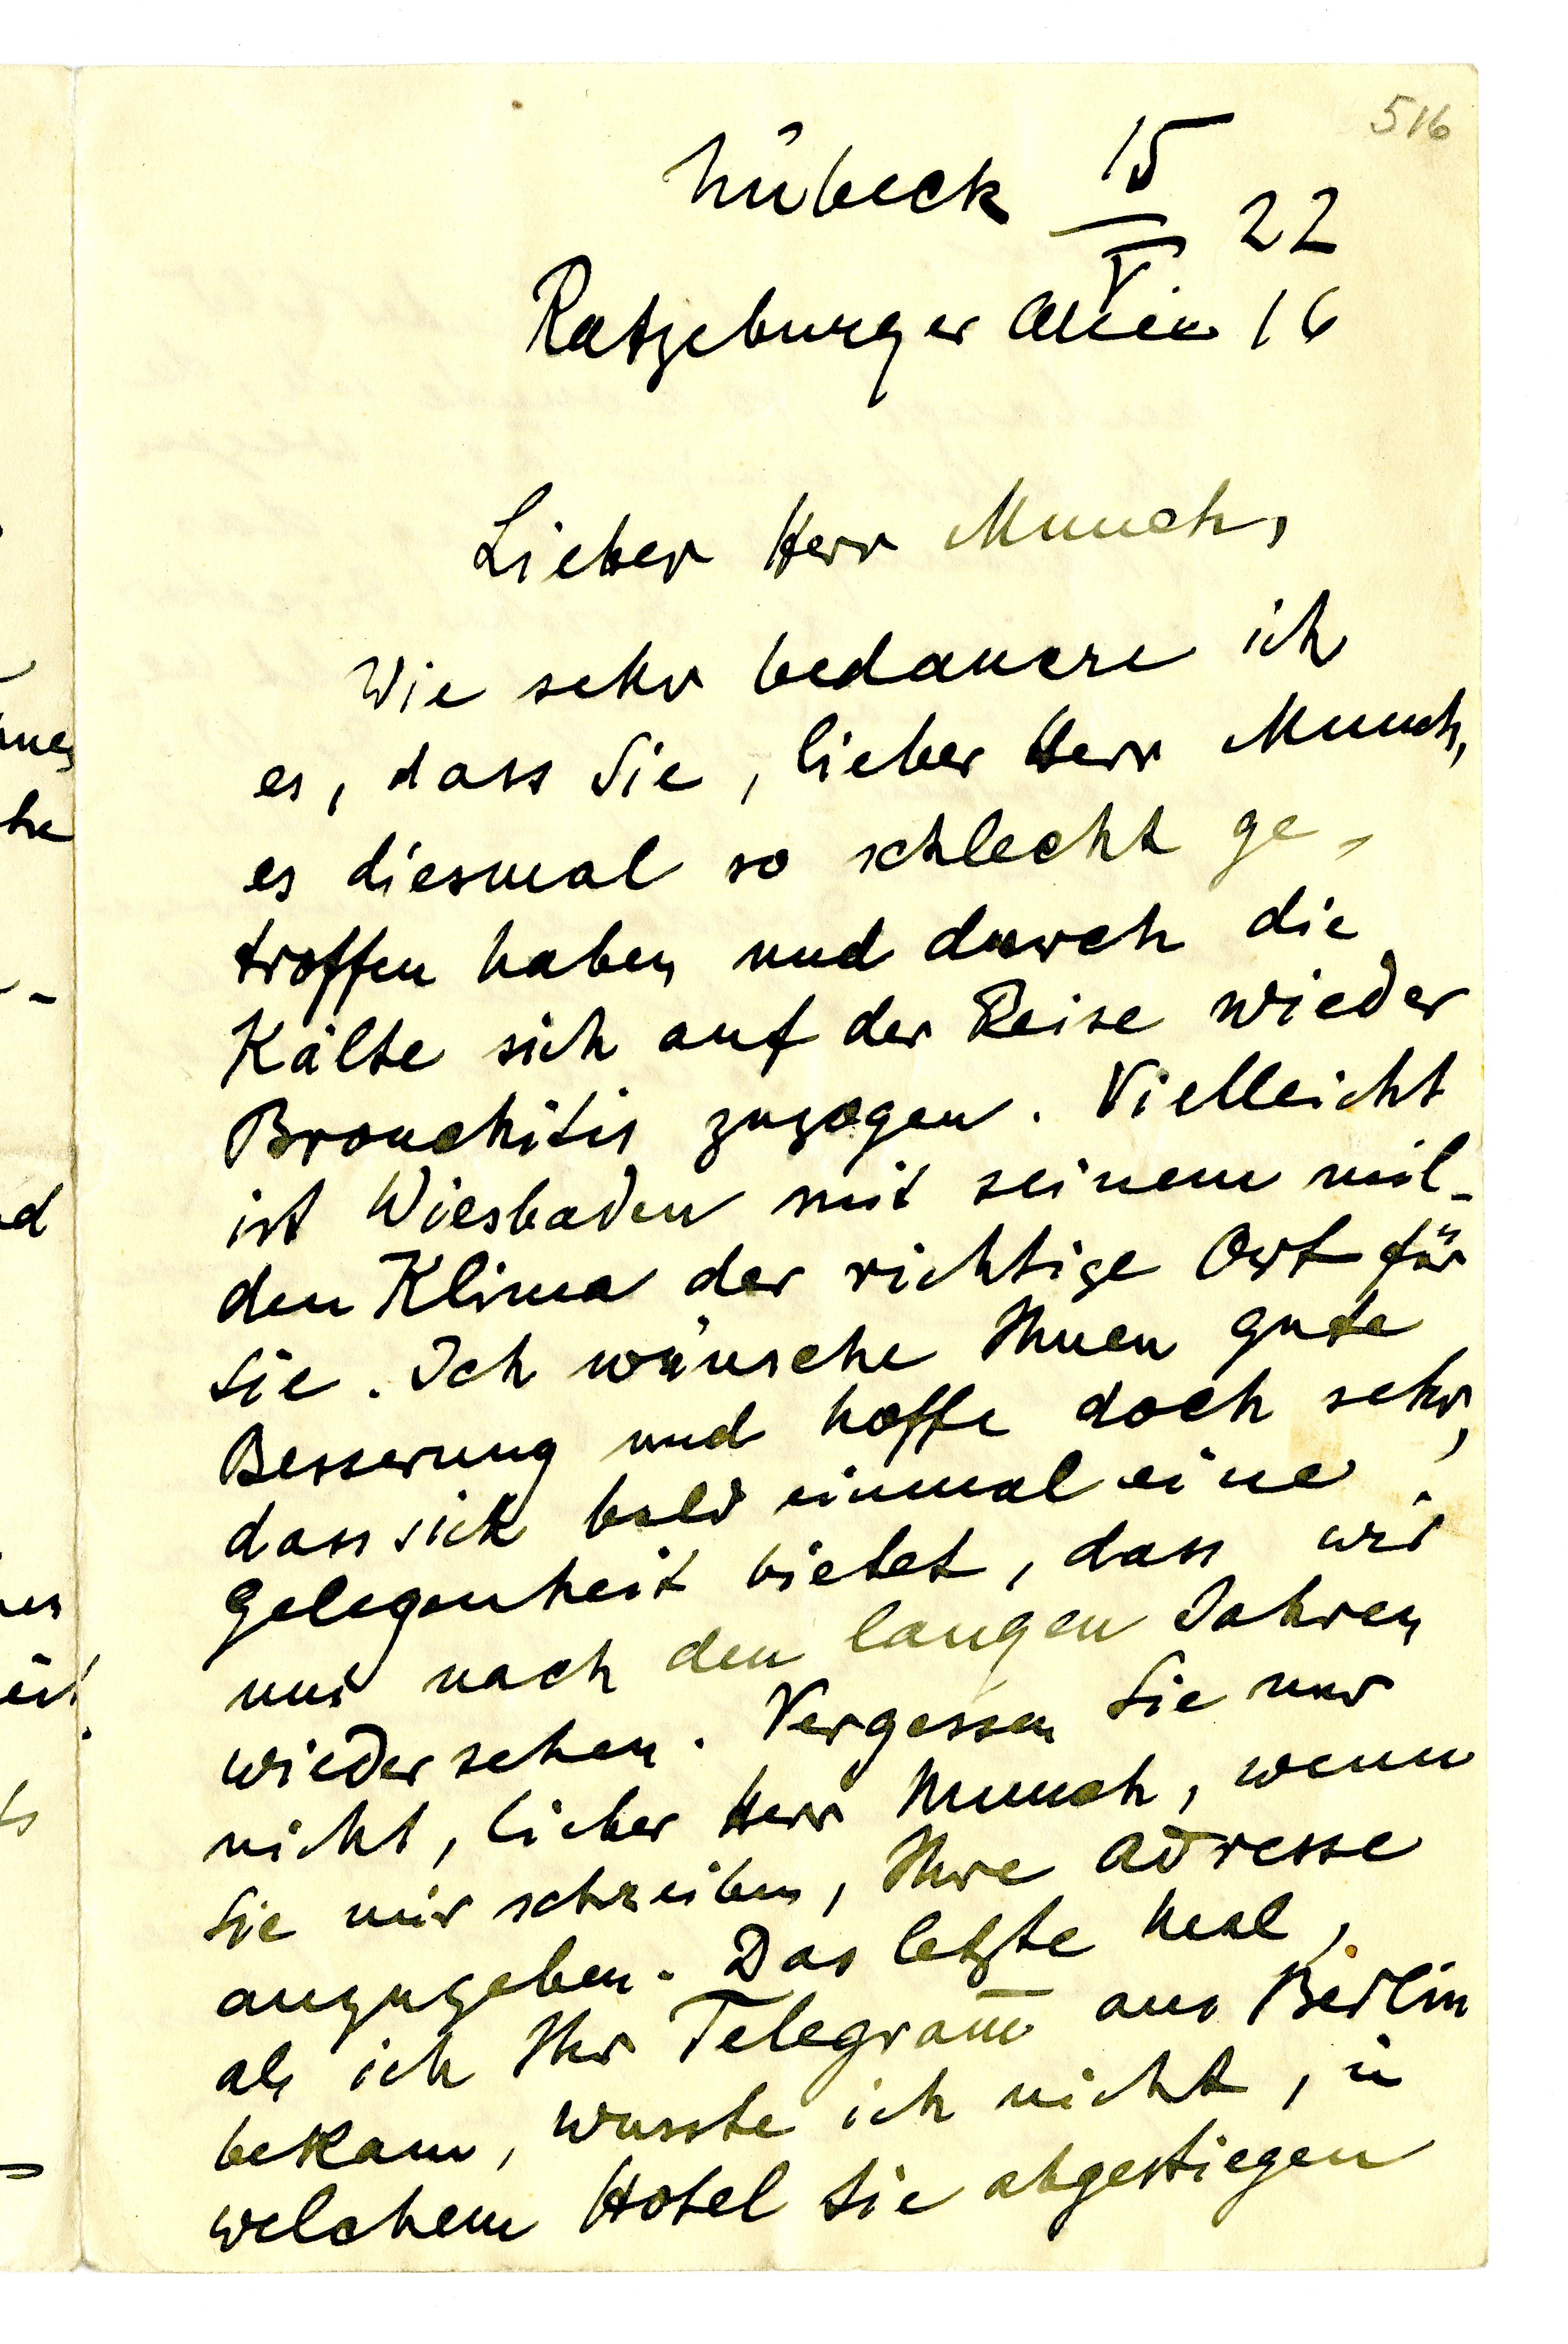 516
Lübeck 15/V 22
Ratzeburger Allee 16
Lieber Herr Munch,
Wie sehr bedauere ich
es, dass Sie, lieber Herr Munch,
es diesmal so schlecht ge-
troffen haben und durch die
Kälte sich auf der Reise wieder
Bronchitis zuzogen. Vielleicht
ist Wiesbaden mit seinem mil-
den Klima der richtige Ort für
Sie. Ich wünsche Ihnen gute
Besserung und hoffe doch sehr,
dass sich bald einmal eine
Gelegenheit bietet, dass wir
uns nach den langen Jahren
wiedersehen. Vergessen Sie nur
nicht, lieber Herr Munch, wenn
Sie mir schreiben, Ihre Adresse
anzugeben. Das letzte Mal,
als ich Ihr Telegram̅ aus Berlin
bekam, wusste ich nicht, in
welchem Hotel Sie abgestiegen